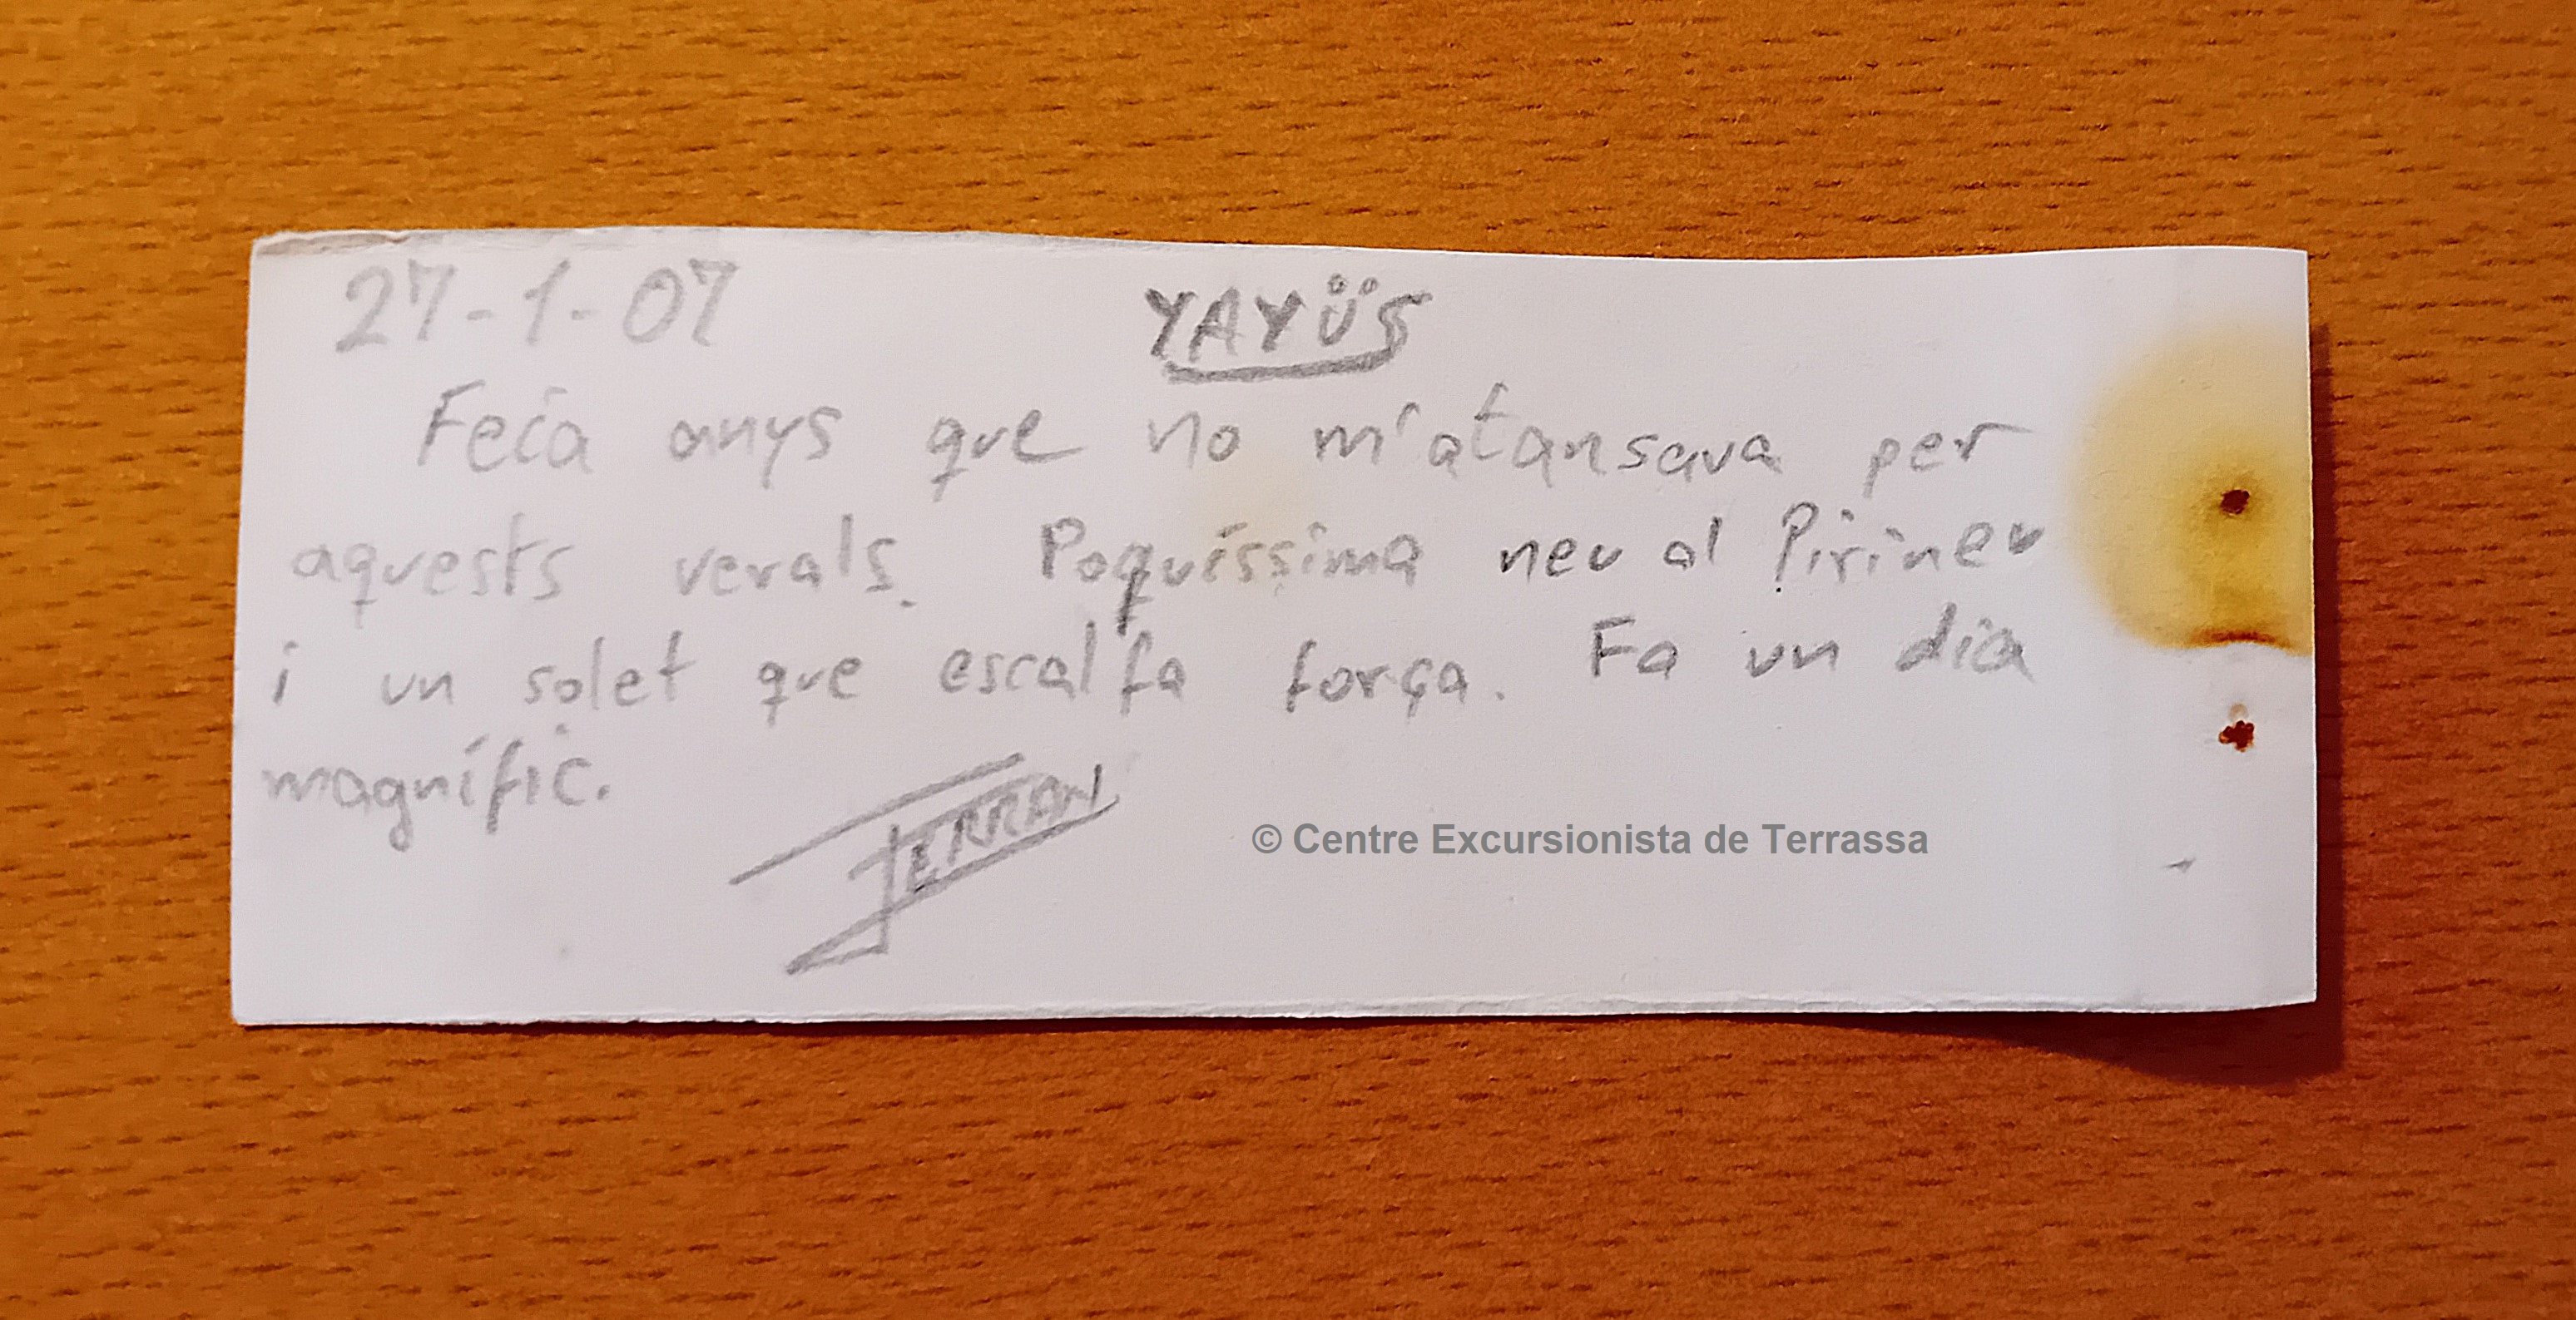 27-1-07 YAYÜS
Feia anys que no m'atansava per
aquests verals. Poquíssima neu al Pirineu
i un solet que escalfa força. Fa un dia
magnífic.
FERRAN
© Centre Excursionista de Terrassa